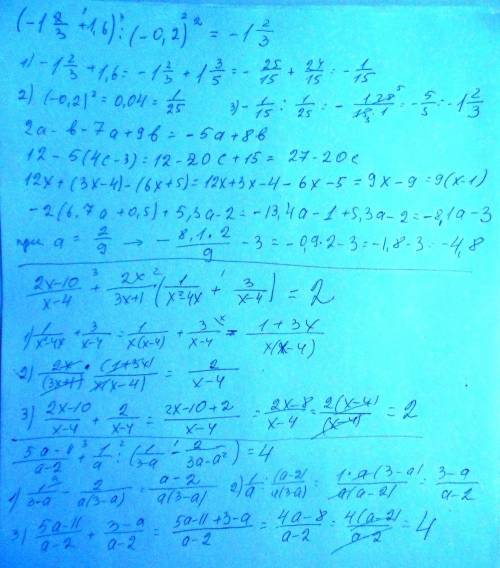 (-1 8/3 + 1,6) : (-0,2)² = -1 2/3
1) -1 2/3 + 1,6 = -1 2/3 + 1 3/5 = - 25/15 + 24/15 = - 1/15
2) (-0,2)² = 0,04 = 1/25 3) - 1/15 : 1/25 = - = - 5/3 = -1 2/3
2a - b - 7a + 9b = -5a + 8b
12 - 5(4c - 3) = 12 - 20c + 15 = 27 - 20c
12x + (3x - 4) - (6x + 5) = 12x + 3x - 4 - 6x - 5 = 9x - 9 = 9(x - 1)
-2(6,7a + 0,5) + 5,3a - 2 = -13,4a - 1 + 5,3a - 2 = -8,1a - 3
при a = 2/9 → - 8,1·2/9 - 3 = -0,9·2 - 3 = -1,8 - 3 = -4,8
2x-10/x-4 + 2x/3x+1 · (1/x²-4x + 3/x-4) = 2
1) 1/x²-4x + 3/x-4 = 1/x(x-4) + 3/x-4 = 1+3x/x(x-4)
2) 2x·(1+3x)/(3x+1)·x(x-4) = 2/x-4
3) 2x-10/x-4 + 2/x-4 = 2x-10+2/x-4 = 2x-8/x-4 = 2(x-4)/(x-4) = 2
5a-11/a-2 + 1/a : (1/3-a - 2/3a-a²) = 4
1) 1/3-a - 2/a(3-a) = a-2/a(3-a) 2) 1/a : (a-2)/a(3-a) = 1·a(3-a)/a(a-2) = 3-a/a-2
3) 5a-11/a-2 + 3-a/a-2 = 5a-11+3-a/a-2 = 4a-8/a-2 = 4(a-2)/a-2 = 4